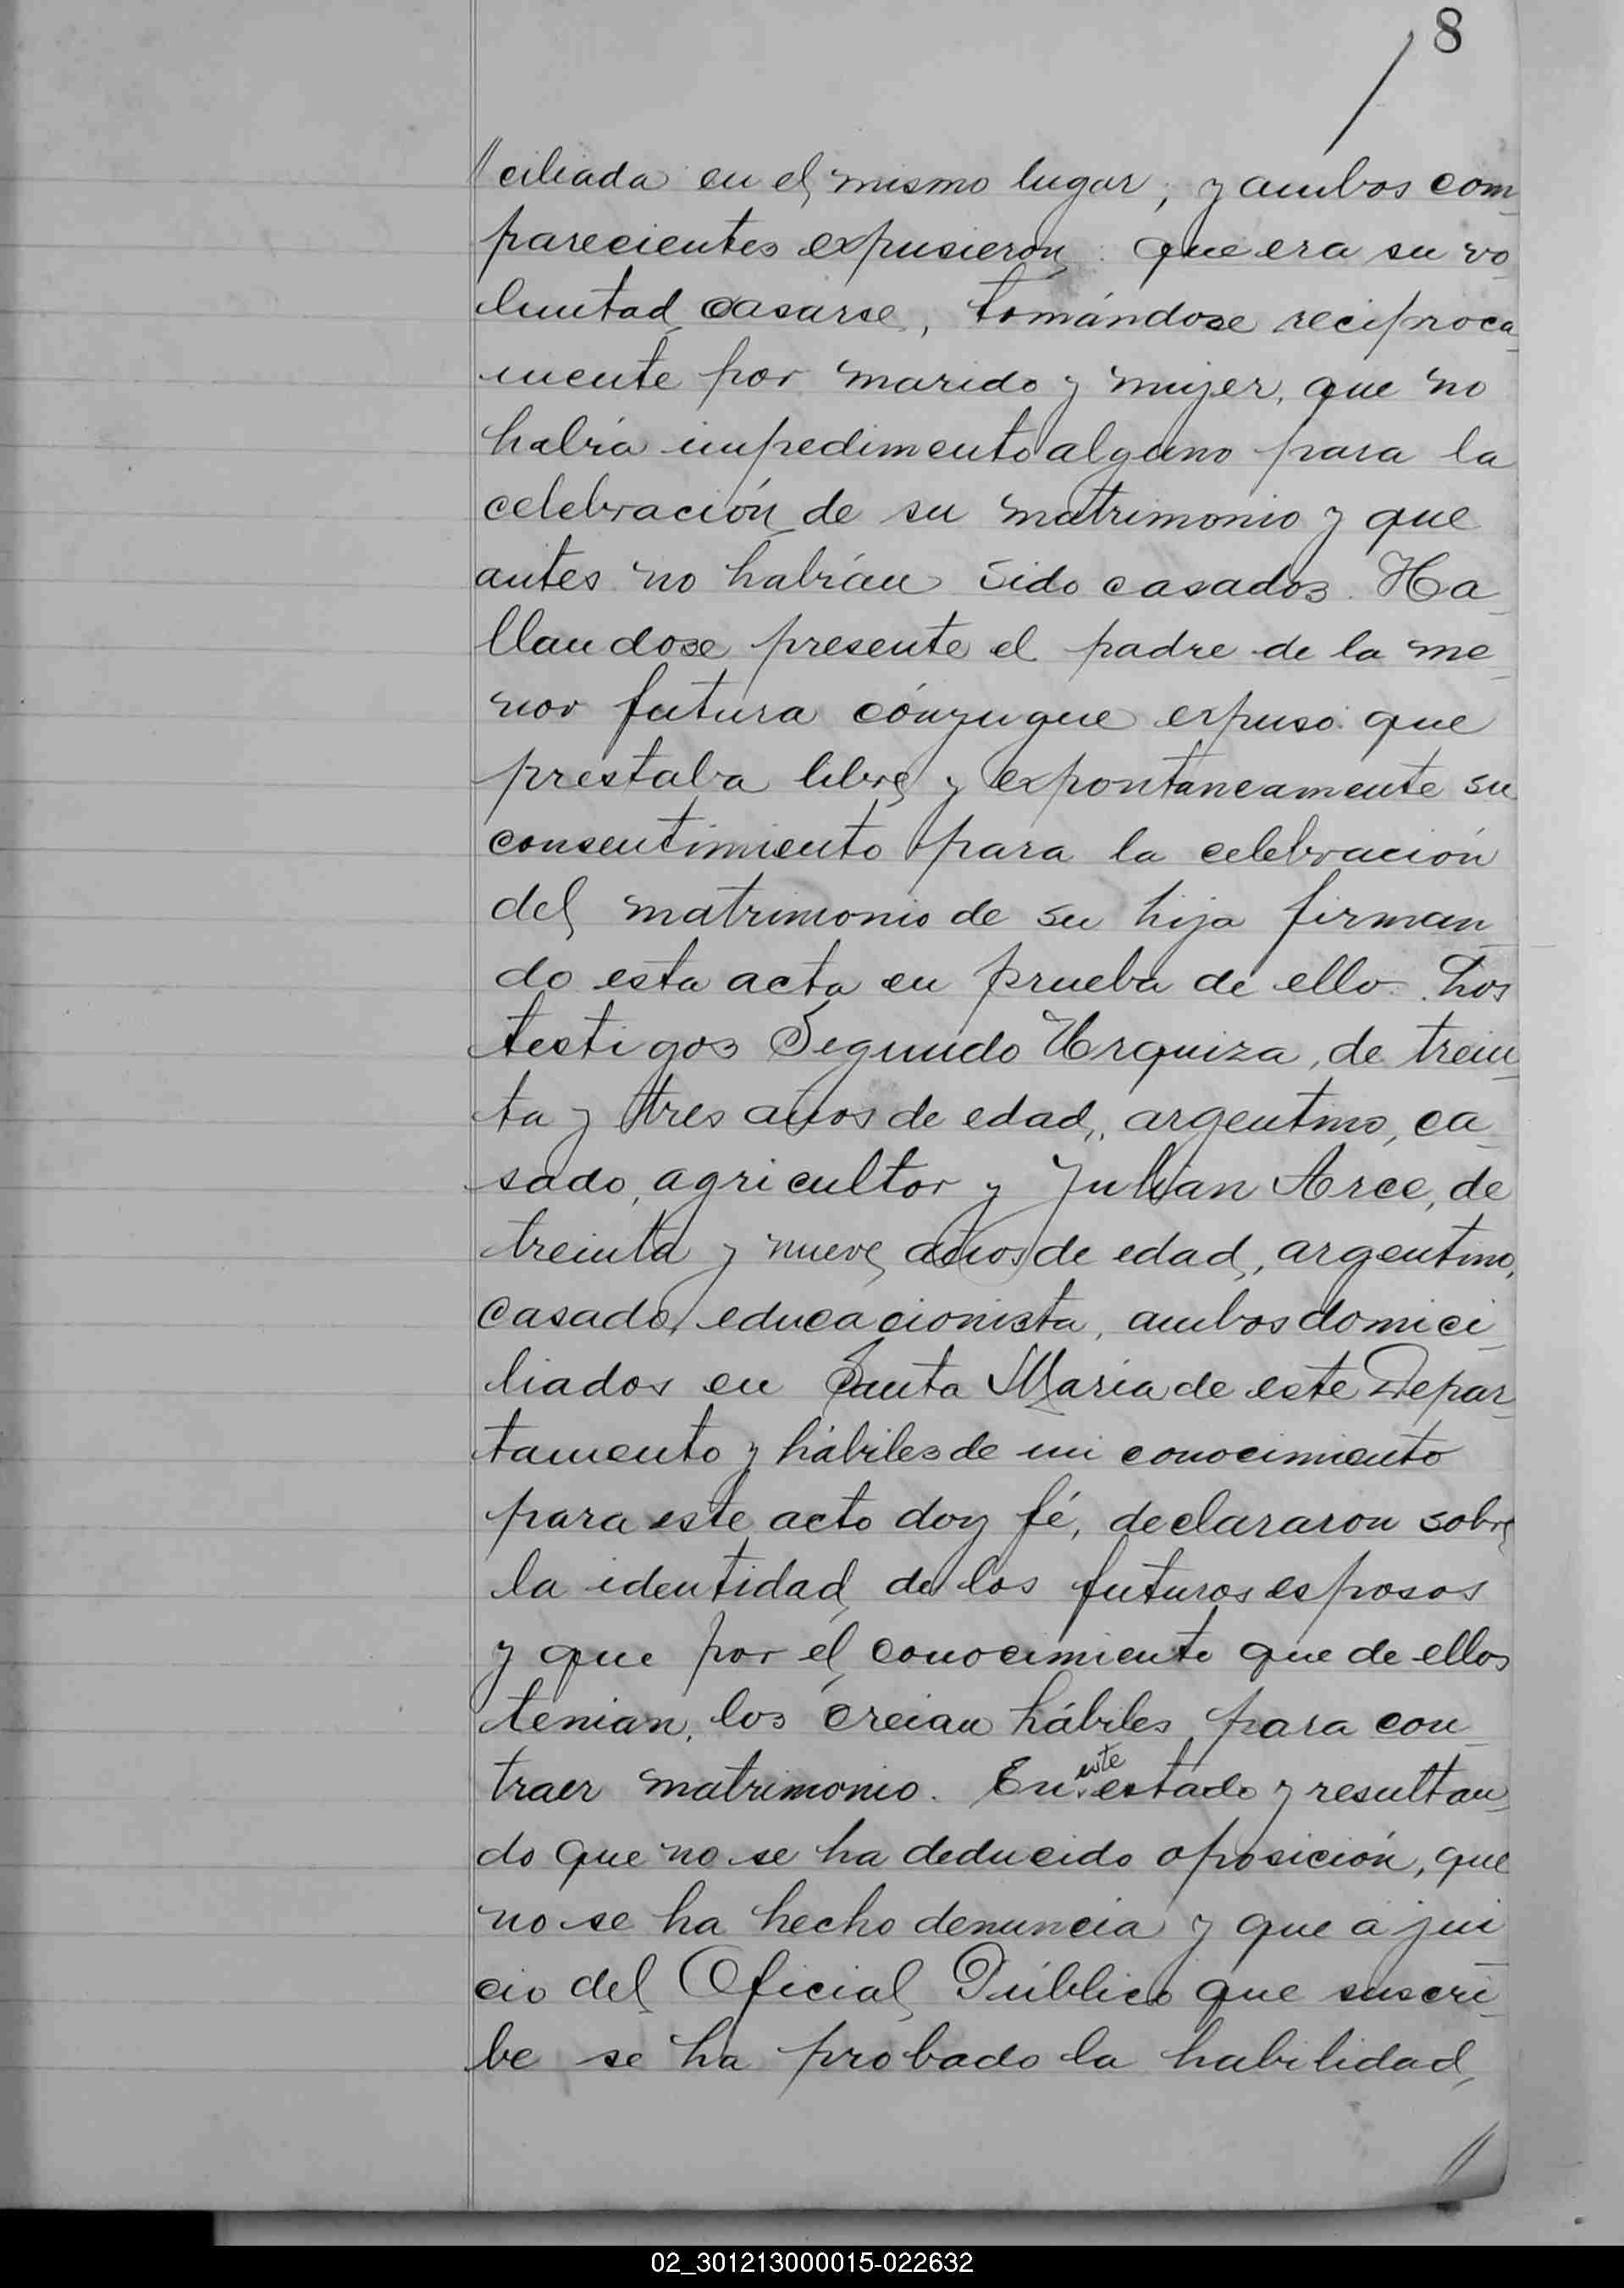 8
//ciliada en el mismo lugar; y ambos com_
parecientes expusieron: que era su vo_
luntad casarse, tomándose reciproca_
mente por marido y mujer, que no
habría impedimento alguno para la
celebración de su matrimonio y que
antes no habrían sido casados. Ha_
llandose presente el padre de la me_
nor futura cónyugue expuso: que
prestaba libre y expontaneamente su
consentimiento para la celebración
del matrimonio de su hija firman_
do esta acta en prueba de ello. Los
testigos Segundo Urquiza, de trein_
ta y tres años de edad, argentino, ca_
sado, agricultor y Julian Arce, de
treinta y nueve años de edad, argentino,
casado, educacionista, ambos domici_
liados en Santa María de este Depar_
tamento y hábiles de mi conocimiento
para este acto doy fé, declararon sobre
la identidad de los futuros esposos
y que por el conocimiento que de ellos
tenian, los creian hábiles para con_
traer matrimonio. En este estado y resultan_
do que no se ha deducido oposición, que
no se ha hecho denuncia y que a jui_
cio del Oficial Público que suscri_
be se ha probado la habilidad
//
02_301213000015-022632